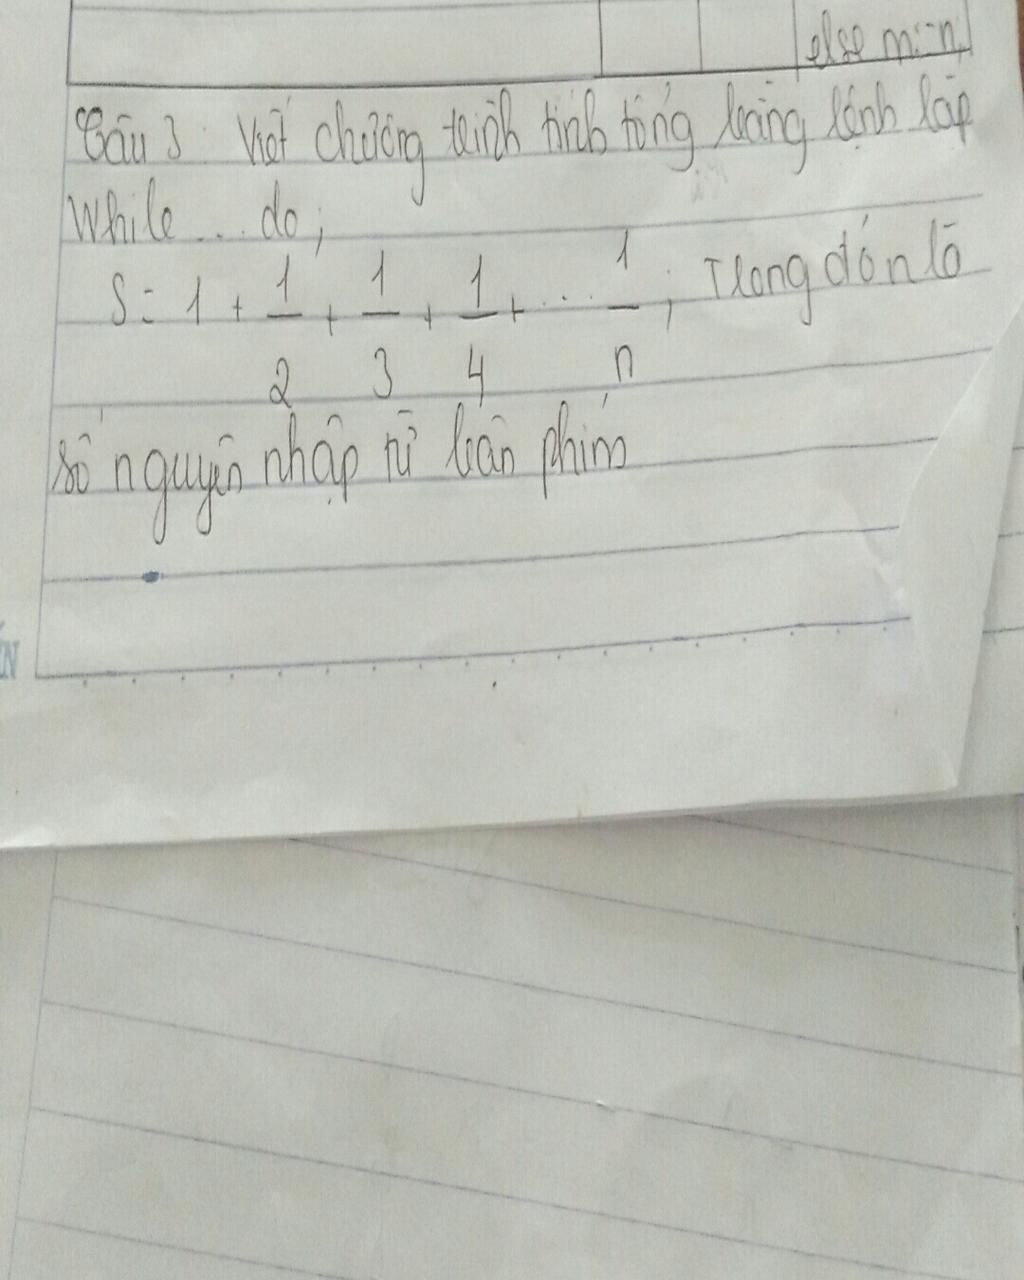 else m:=n;
Câu 3: Viết chương trình tính tổng bằng lệnh lặp
While ... do;
S = 1 + 1/2 + 1/3 + 1/4 + ... 1/n ; Trong đó n là
số nguyên nhập từ bàn phím